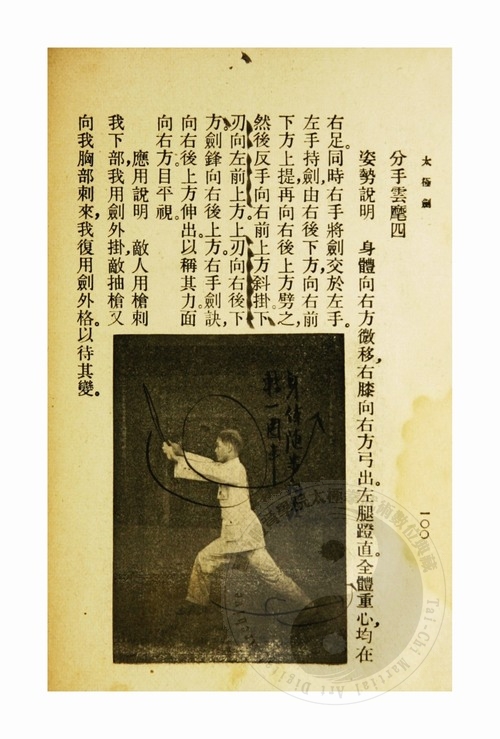 太極劍
一〇〇
分手雲麾四
姿勢說明　身體向右方微移，右膝向右方弓出。左腿蹬直。全體重心，均在
右足。同時右手將劍交於左手。
左手持劍，由右後下方，向右前
下方上提，再向右後上方劈之，
然後反手向右前上方斜掛。下
刃向左前上方。上刃向右後下
方。劍鋒向右後上方。右手劍訣，
向右後上方伸出。以稱其力。面
向右方。目平視。
應用說明　敵人用槍刺
我下部，我用劍外掛，敵抽槍又
向我胸部刺來，我復用劍外格。以待其變。
身體隨步
轉一圈半
Tai-Chi Martial Art Digit